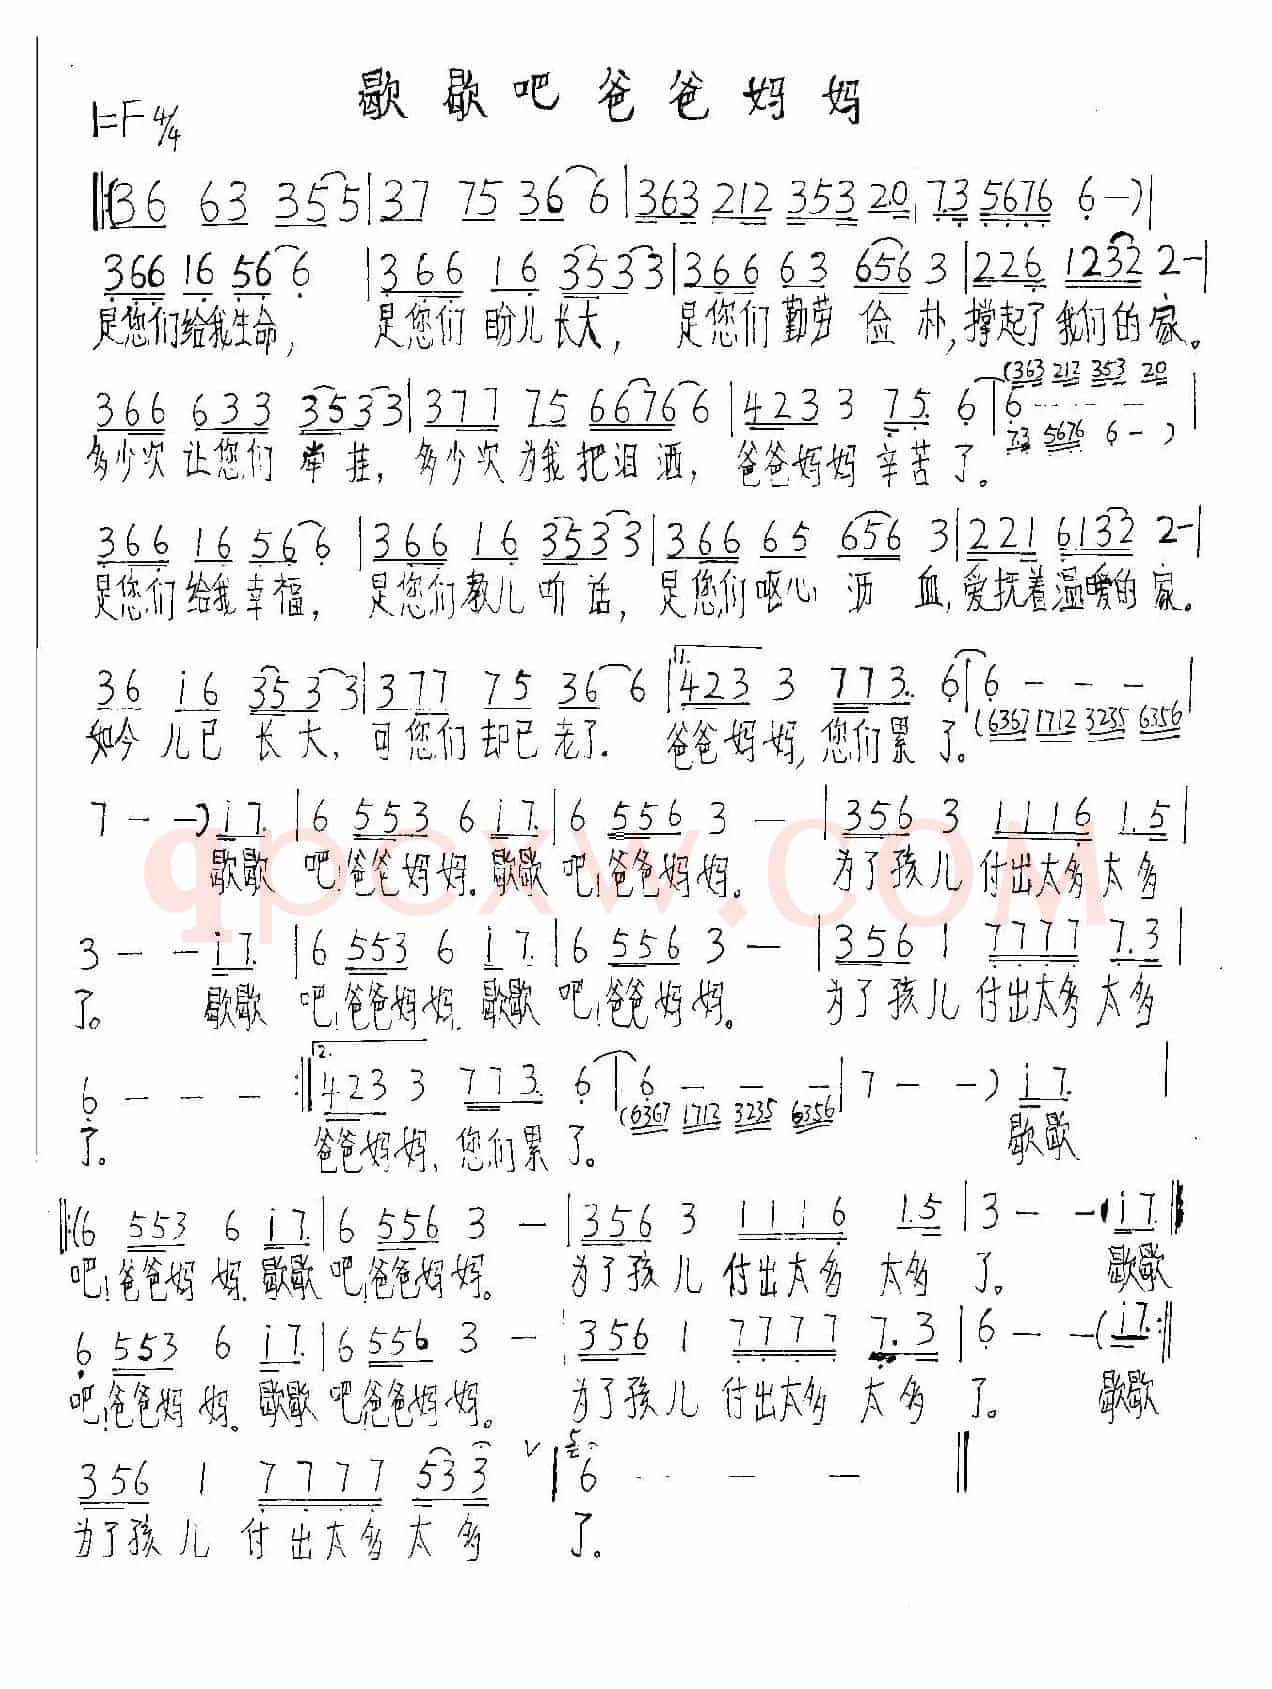 歇歇吧爸爸妈妈
1=F 4/4
‖:(36 63 3555|37 75 36 6|363 212 353 20|7.3 5676 6-)|
366 16 56 6 |366 16 35 33|366 63 656 3|226 1232 2-|
是您们给我生命， 是您们盼儿长大， 是您们勤劳俭朴，撑起了我们的家。
(363 212 353 20
366 633 3533|377 75 6676 6|423 3 75. 6|6 - - -|
7.3 5676 6-)
多少次让您们牵挂，多少次为我把泪洒，爸爸妈妈辛苦了。
366 16 56 6|366 16 35 33|366 65 656 3|221 6132 2-|
是您们给我幸福， 是您们教儿听话，是您们呕心沥血，爱抚着温暖的家。
36 i6 35 33|377 75 36 6|1.423 3 773. 6|6 - - -|
(6367 1712 3235 6356
如今儿已长大，可您们却已老了。爸爸妈妈，您们累了。
7 - -) i7.|6 553 6 i7.|6 556 3 -|356 3 1116 1.5|
歇歇吧！爸爸妈妈。歇歇吧！爸爸妈妈。为了孩儿付出太多太多
3 - - i7.|6 553 6 i7.|6 556 3 -|356 1 7777 7.3|
了。歇歇吧！爸爸妈妈，歇歇吧！爸爸妈妈。为了孩儿付出太多太多
6 - - - :‖2.423 3 773. 6|6 - - -|7 - -) i7.|
(6367 1712 3235 6356
了。爸爸妈妈，您们累了。歇歇
‖:(6 553 6 i7.|6 556 3 -|356 3 1116 1.5|3 - - i7.‖
吧！爸爸妈妈，歇歇吧！爸爸妈妈。为了孩儿付出太多太多了。歇歇
6 553 6 i7.|6 556 3 -|356 1 7777 7.3|6 - -(i7.:‖
吧！爸爸妈妈。歇歇吧！爸爸妈妈。为了孩儿付出太多太多了。歇歇
356 1 7777 533 ∨|5 6 - - -‖
为了孩儿付出太多太多了。
qpcxw.COM